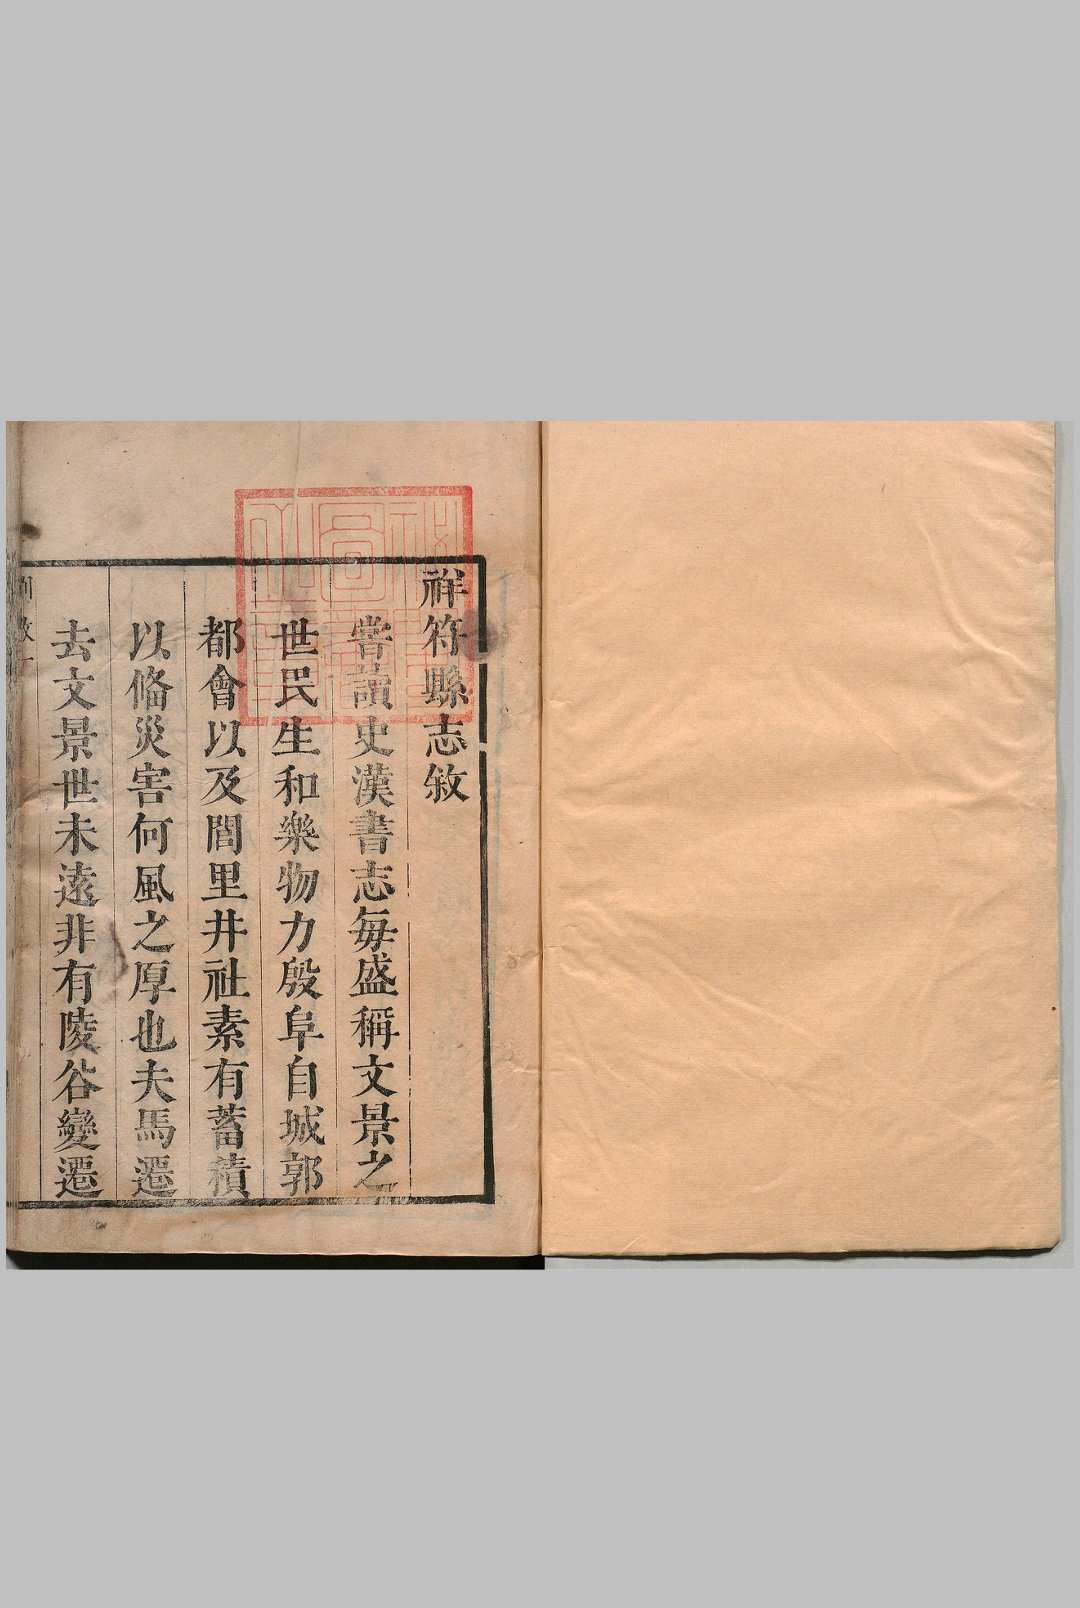 祥符縣志敘
嘗讀史漢書志每盛稱文景之
世民生和樂物力殷阜自城郭
都會以及閭里井社素有蓄積
以備災害何風之厚也夫馬遷
去文景世未遠非有陵谷變遷